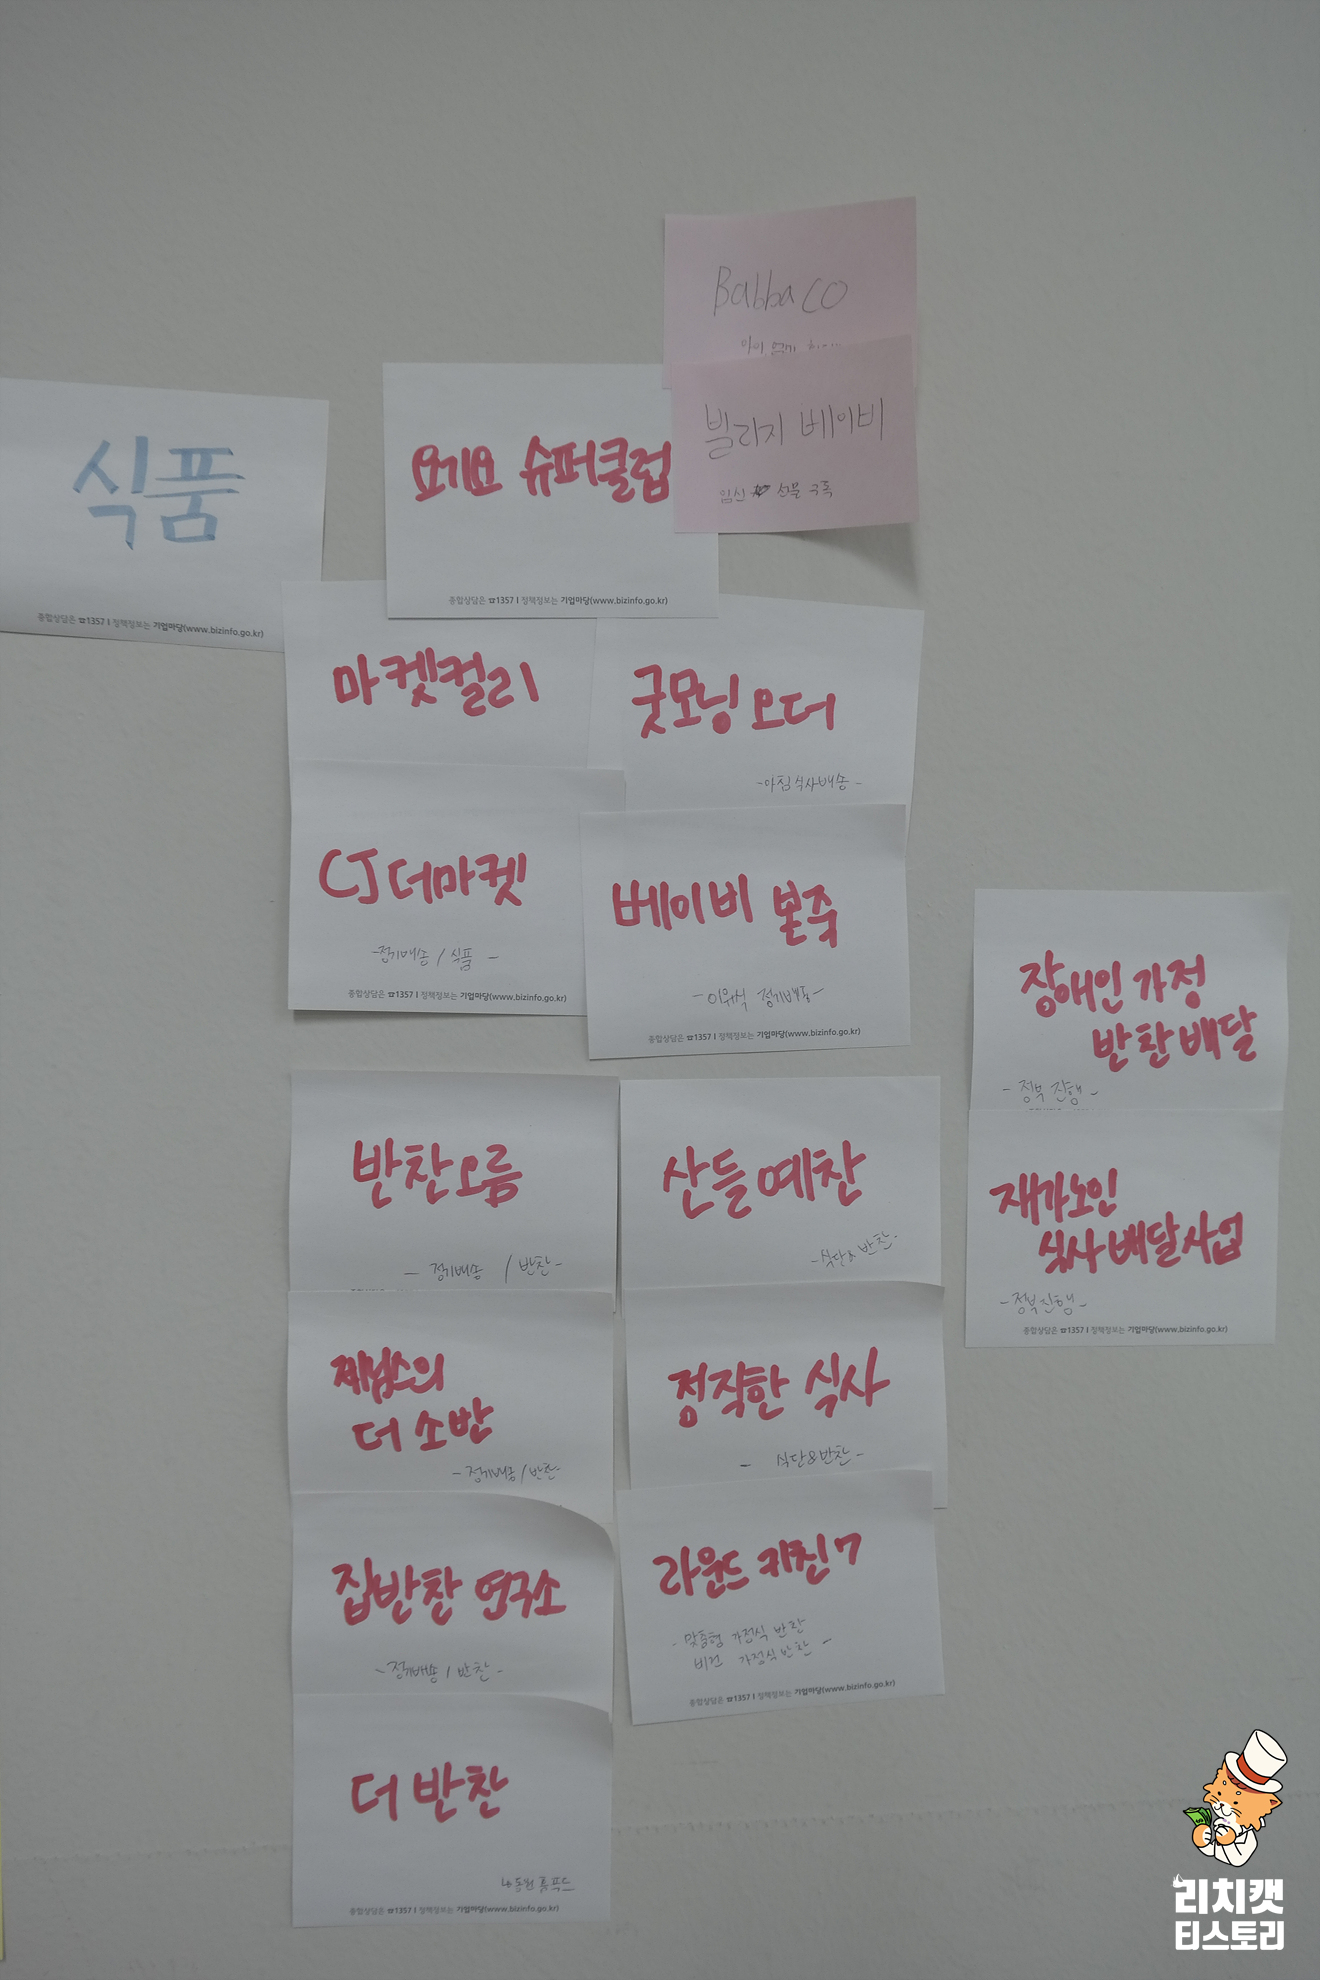 Babba CO
빌리지 베이비
임신 선물 구독
식품
종합상담은 ☎1357 I 정책정보는 기업마당(www.bizinfo.go.kr)
요기요 슈퍼클럽
종합상담은 ☎1357 I 정책정보는 기업마당(www.bizinfo.go.kr)
마켓컬리
굿모닝 오더
-아침식사배송-
CJ 더마켓
-정기배송 / 식품 -
종합상담은 ☎1357 I 정책정보는 기업마당(www.bizinfo.go.kr)
베이비 본죽
-이유식 정기배송-
종합상담은 ☎1357 I 정책정보는 기업마당(www.bizinfo.go.kr)
장애인 가정
반찬 배달
- 정부 진행 -
재가노인
식사 배달사업
-정부진행-
종합상담은 ☎1357 I 정책정보는 기업마당(www.bizinfo.go.kr)
반찬오름
- 정기배송 / 반찬-
산들예찬
-식단&반찬-
더 소반
-정기배송 / 반찬-
정직한 식사
- 식단&반찬-
집반찬 연구소
-정기배송 / 반찬-
라운드 키친 7
- 맞춤형 가정식 반찬
비건 가정식 반찬 -
종합상담은 ☎1357 I 정책정보는 기업마당(www.bizinfo.go.kr)
더 반찬
종합상담은 ☎1357 I 정책정보는 기업마당(www.bizinfo.go.kr)
리치캣
티스토리